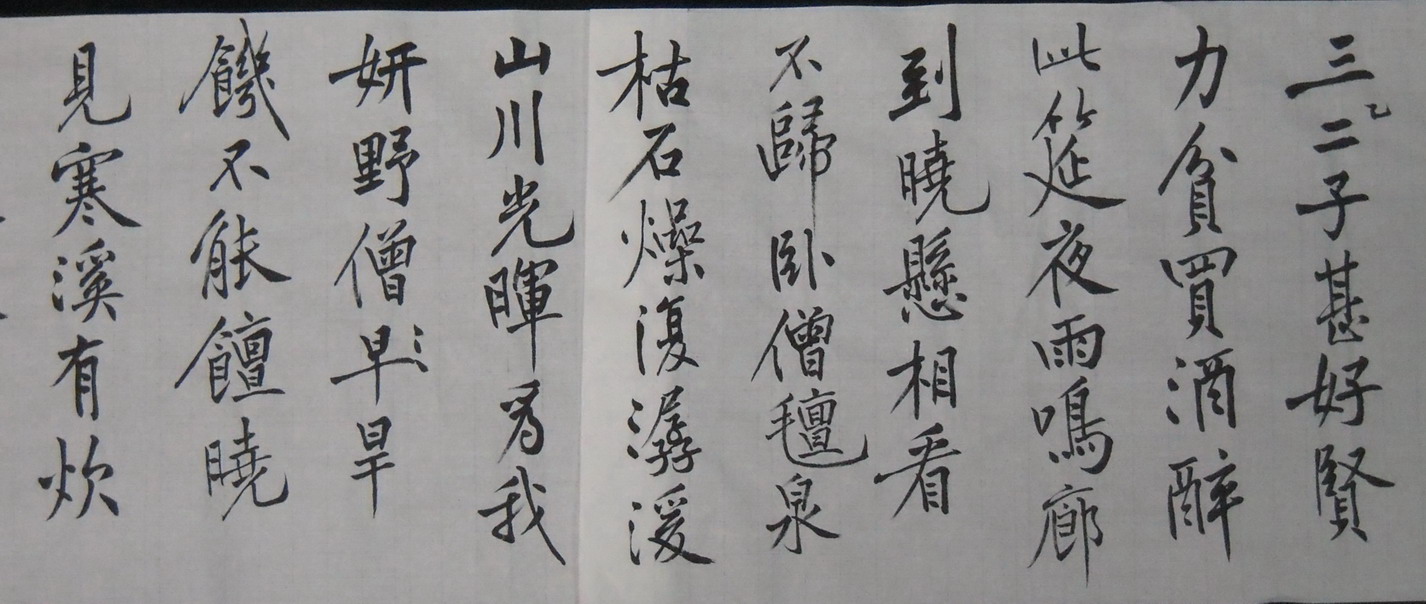 三二子甚好賢
力貧買酒醉
此筵夜雨鳴廊
到曉懸相看
不歸卧僧氊泉
枯石燥復潺湲
山川光暉為我
妍野僧早旱
饑不能饘曉
見寒溪有炊